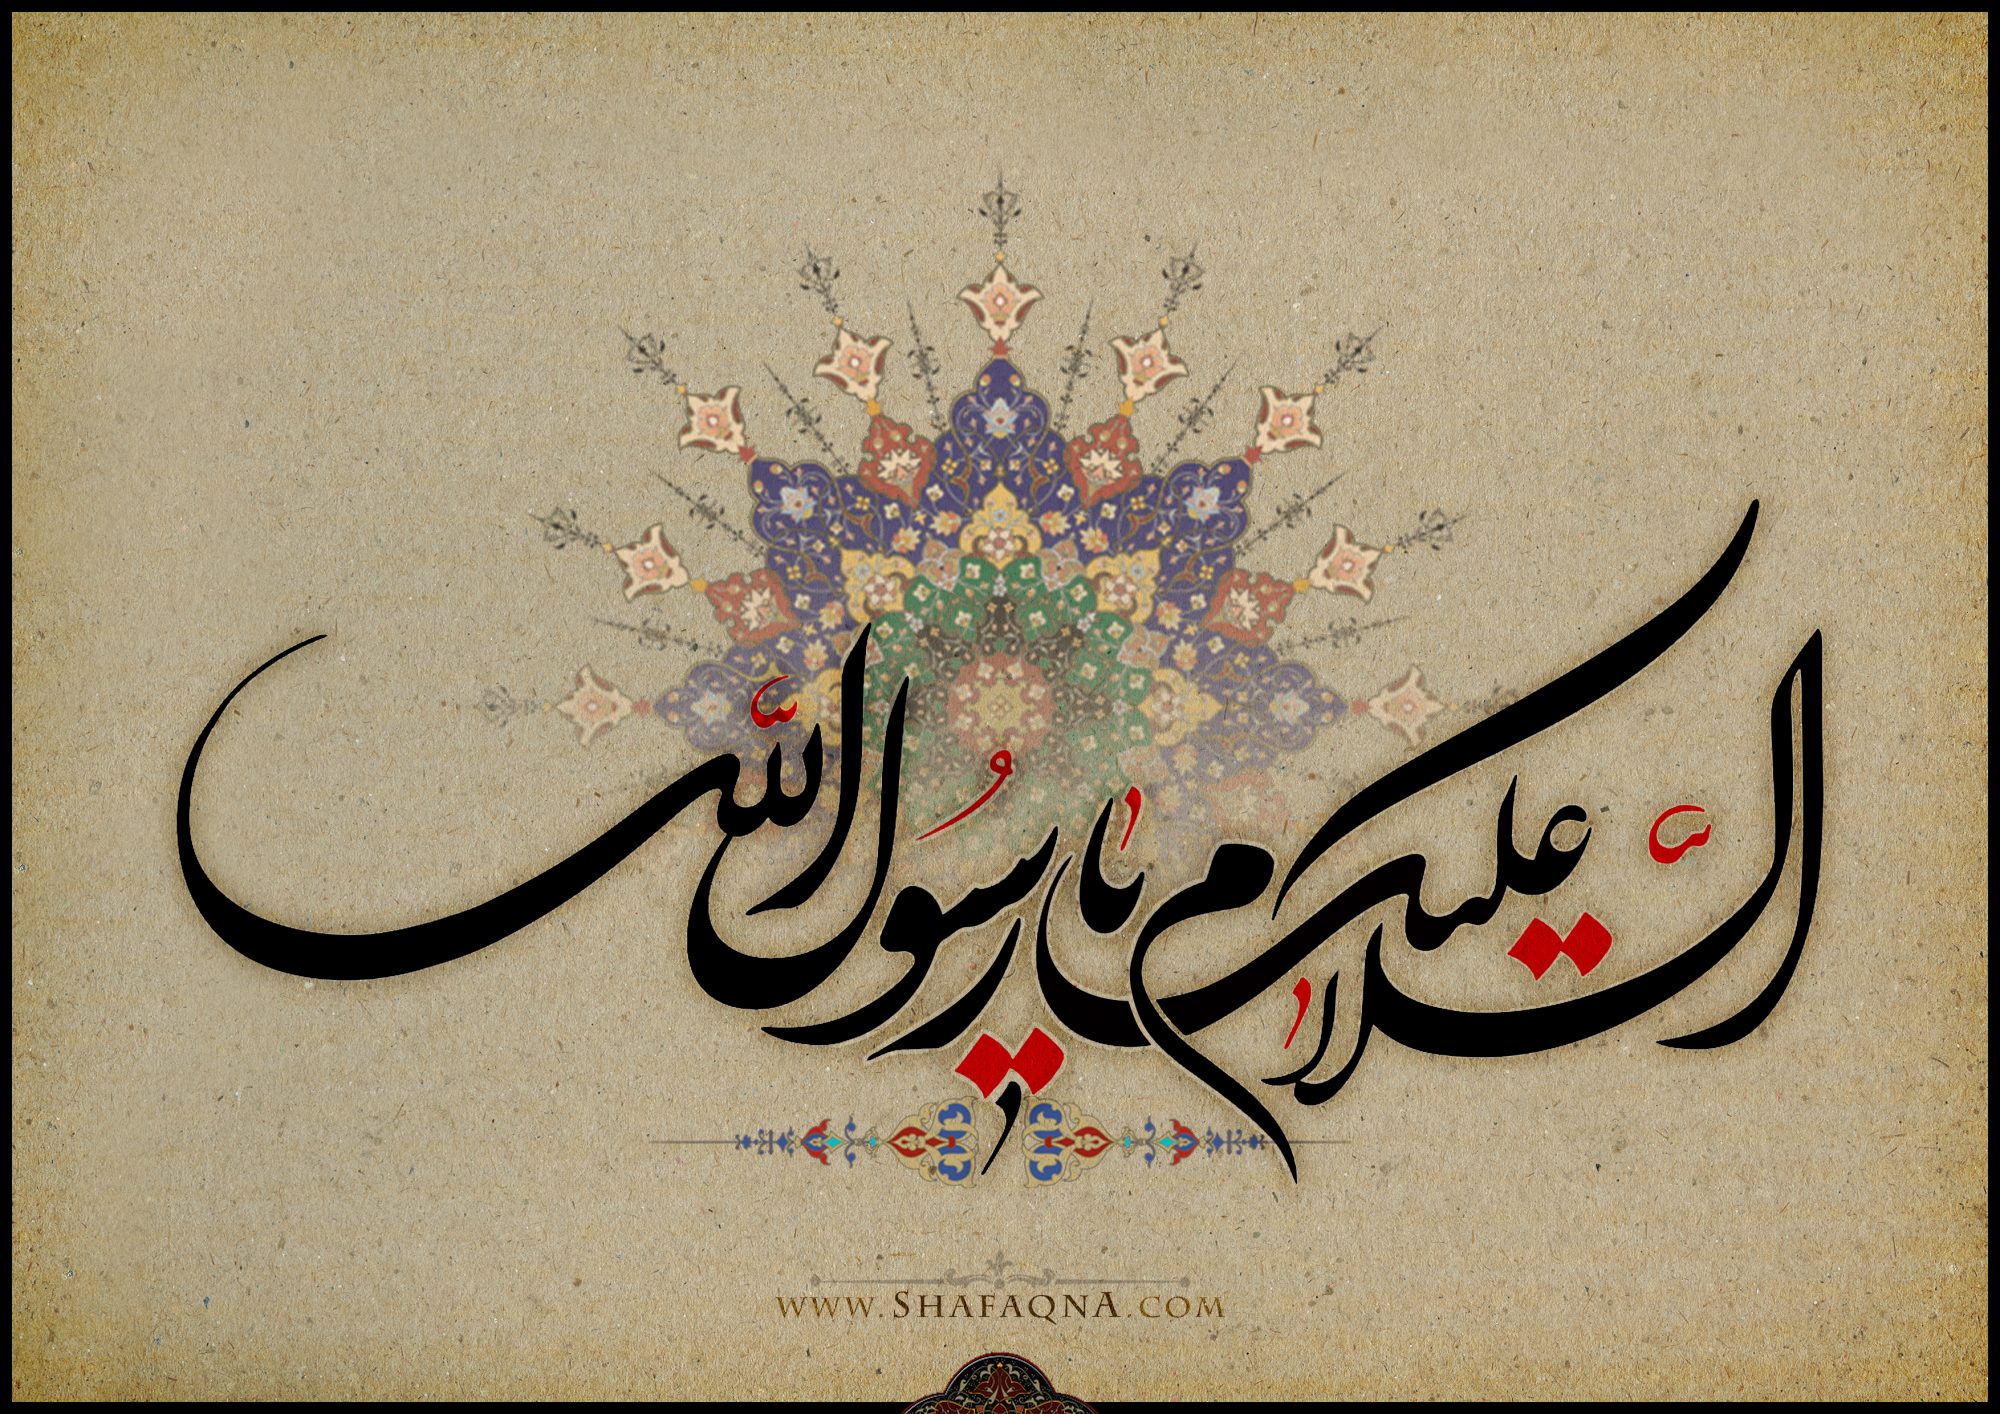 السّلام عليك يا رسُول اللّه
www.Shafaqna.com